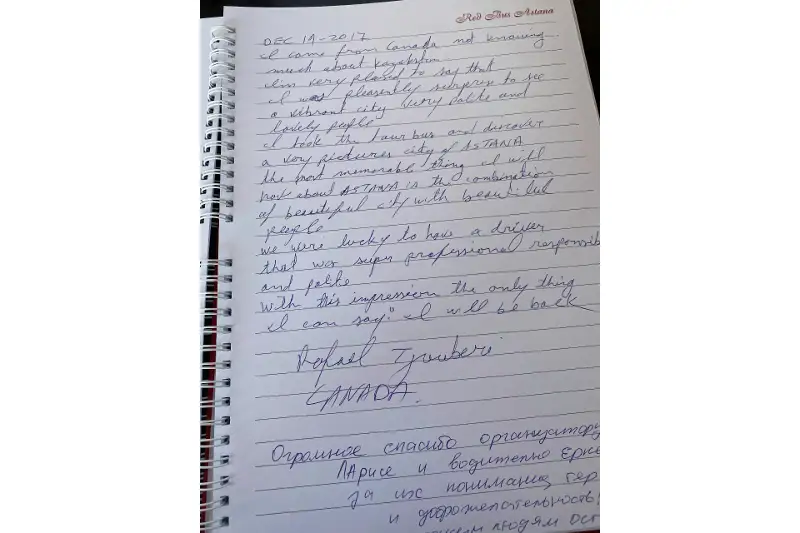 Red Bus Astana
DEC 19-2017
I came from Canada not knowing
much about
I'm very plased to say that
I was pleasently surprize to see
a vibrant city very polite and
lovely people
I took the tour bus and discover
a very pictures city of ASTANA
the most memorable thing I will
have about ASTANA is the combination
of beautiful city with beautiful
people
we were lucky to have a driver
that was super professional responsib
and polite
with this impression the only thing
I can say: "I will be back
Rafael
CANADA.
Огромное спасибо организатору
Ларисе и водителю Ерке
за их понимание, тер
и доброжелательность!
людям ост